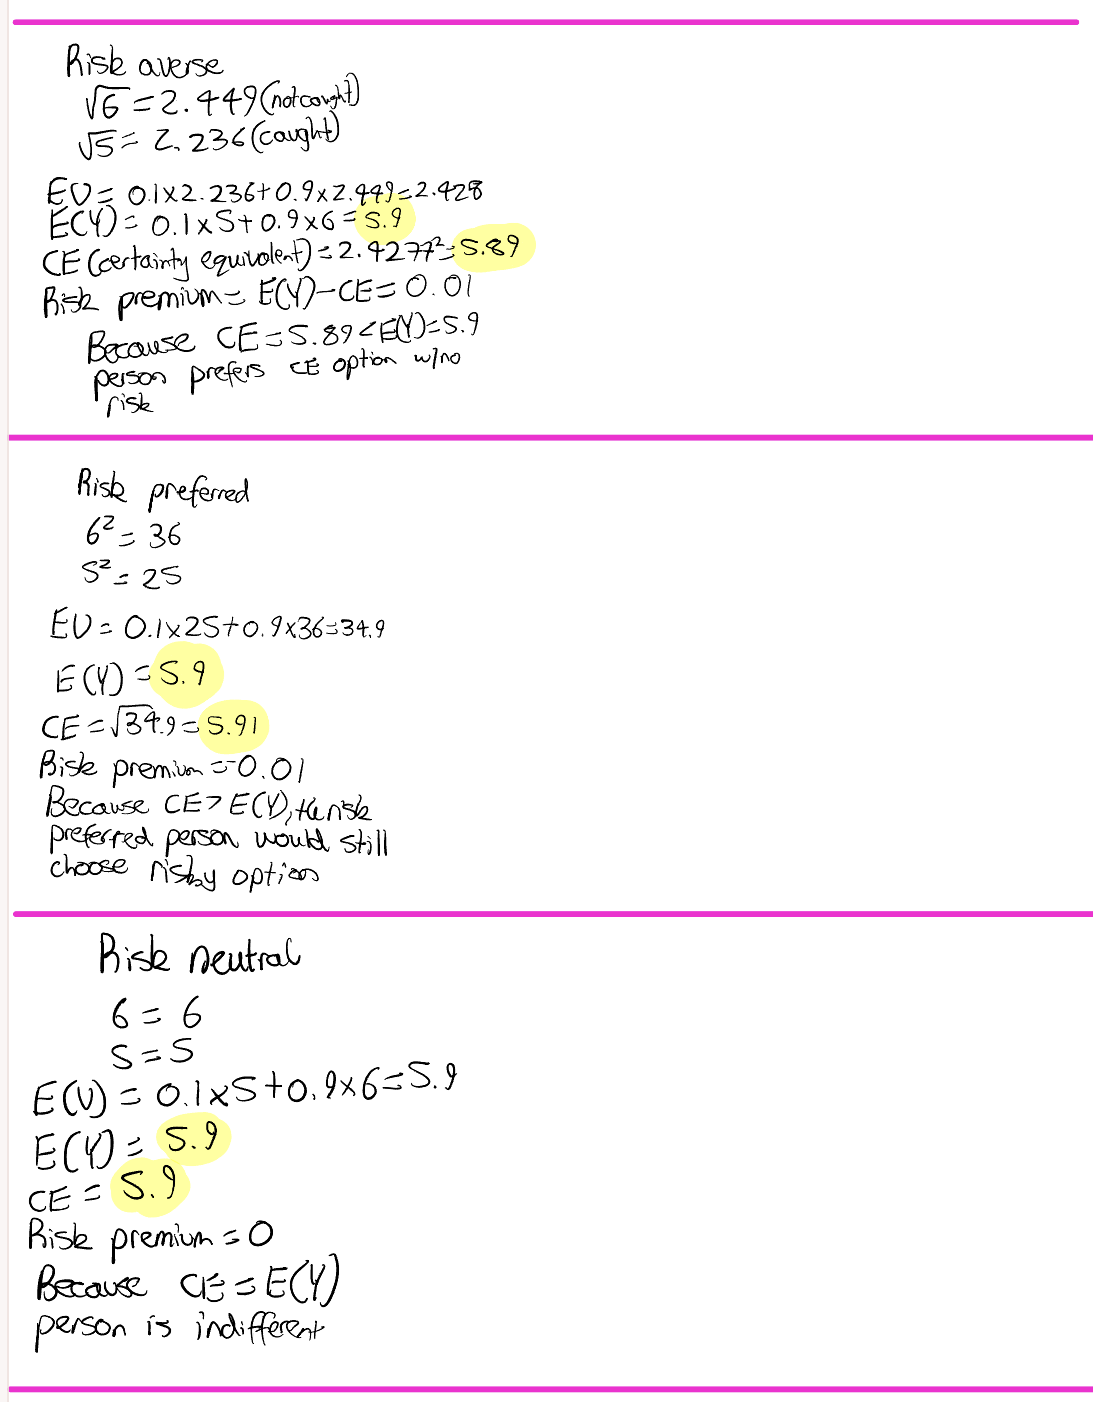 Risk averse
√6 = 2.449 (not caught)
√5 = 2.236 (caught)
EU = 0.1x2.236+0.9x2.449=2.428
E(Y) = 0.1x5+0.9x6=5.9
CE (certainty equivalent) = 2.4277²=5.89
Risk premium = E(Y)-CE = 0.01
Because CE=5.89<E(Y)=5.9
person prefers CE option w/no
risk
Risk preferred
6² = 36
5² = 25
EU = 0.1x25+0.9x36=34.9
E(Y) = 5.9
CE = √34.9 = 5.91
Risk premium = -0.01
Because CE > E(Y), the risk
preferred person would still
choose risky option
Risk neutral
6 = 6
5 = 5
E(U) = 0.1x5+0.9x6=5.9
E(Y) = 5.9
CE = 5.9
Risk premium = 0
Because CE = E(Y)
person is indifferent